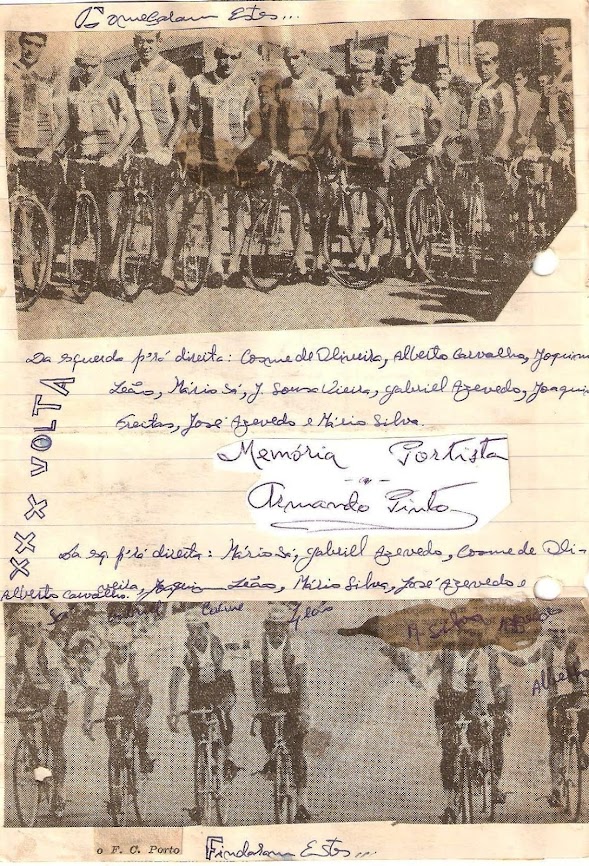 Começaram Estes...
Da esquerda p'rá direita: Cosme de Oliveira, Alberto Carvalho, Joaquim
Leão, Mário Sá, J. Sousa Vieira, Gabriel Azevedo, Joaquim
Freitas, José Azevedo e Mário Silva.
XXX VOLTA
Memória Portista
Armando Pinto
Da esq. p'rá direita: Mário Sá, Gabriel Azevedo, Cosme de Oli-
veira, Joaquim Leão, Mário Silva, José Azevedo e
Alberto Carvalho.
Sá Gabriel Cosme Leão
M. Silva
Alberto
o F. C. Porto
Findaram Estes...